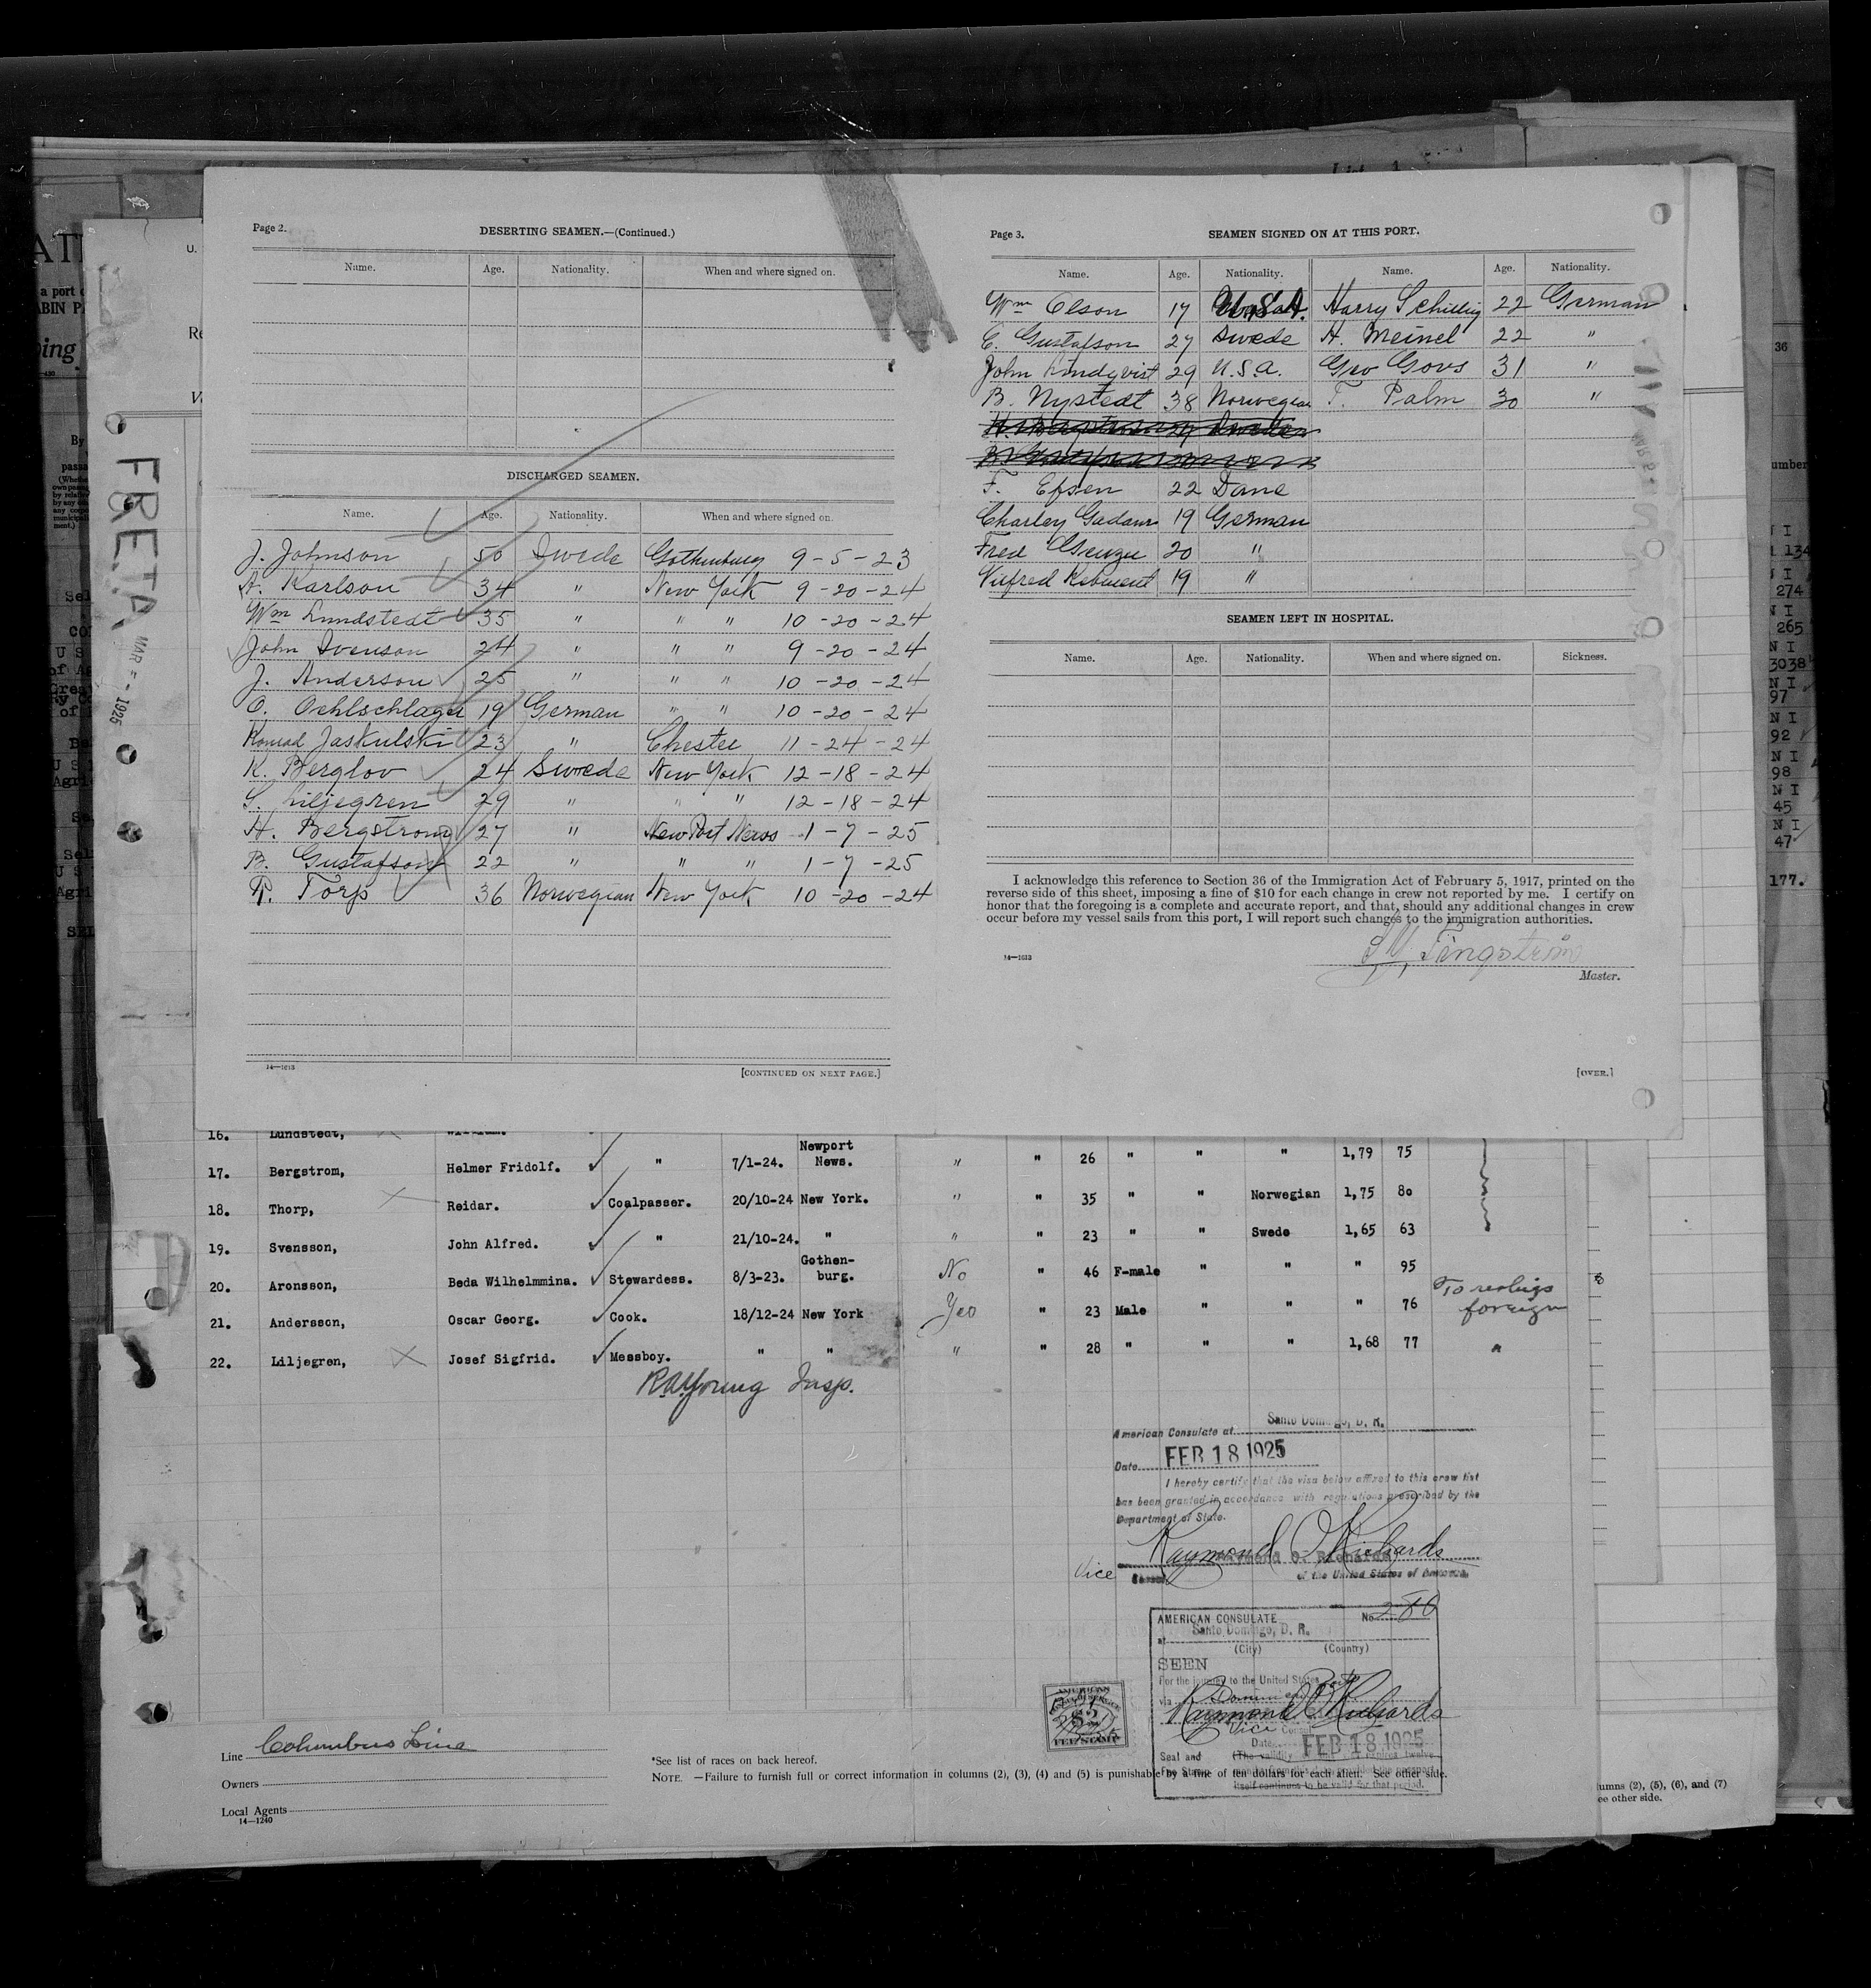 Page 2.
DESERTING SEAMEN.—(Continued.)
Name. Age. Nationality. When and where signed on.
DISCHARGED SEAMEN.
Name. Age. Nationality. When and where signed on.
J. Johnson 50 Swede Gothenburg 9-5-23
A. Karlson 34 " New York 9-20-24
Wm Lundstedt 35 " " " 10-20-24
John Svenson 24 " " " 9-20-24
J. Anderson 25 " " " 10-20-24
O. Oehlschlager 19 German " " 10-20-24
Konrad Jaskulski 23 " Chester 11-24-24
K. Berglov 24 Swede New York 12-18-24
S. Liljegren 29 " " " 12-18-24
H. Bergstrom 27 " New Port News 1-7-25
B. Gustafson 22 " " " 1-7-25
R. Torp 36 Norwegian New York 10-20-24
14—1613
[CONTINUED ON NEXT PAGE.]
Page 3.
SEAMEN SIGNED ON AT THIS PORT.
Name. Age. Nationality. Name. Age. Nationality.
Wm Olson 17 U.S.A. Harry Schillig 22 German
E. Gustafson 27 Swede H. Meinel 22 "
John Lindqvist 29 U.S.A. Geo Govs 31 "
B. Nystedt 38 Norwegian F. Palm 30 "
F. Epsen 22 Dane
Charley 19 German
Fred 20 "
19 "
SEAMEN LEFT IN HOSPITAL.
Name. Age. Nationality. When and where signed on. Sickness.
I acknowledge this reference to Section 36 of the Immigration Act of February 5, 1917, printed on the
reverse side of this sheet, imposing a fine of $10 for each change in crew not reported by me. I certify on
honor that the foregoing is a complete and accurate report, and that, should any additional changes in crew
occur before my vessel sails from this port, I will report such changes to the immigration authorities.
Tingström
14—1613
Master.
[OVER.]
FRETA MAR 1925
16. Lundstedt, William.
17. Bergstrom, Helmer Fridolf. " 7/1-24. Newport News. " " 26 " " " 1,79 75
18. Thorp, Reidar. Coalpasser. 20/10-24 New York. " " 35 " " Norwegian 1,75 80
19. Svensson, John Alfred. " 21/10-24. " " " 23 " " Swede 1,65 63
20. Aronsson, Beda Wilhelmmina. Stewardess. 8/3-23. Gothenburg. No " 46 F-male " " " 95
21. Andersson, Oscar Georg. Cook. 18/12-24 New York Yes " 23 Male " " " 76 To reship foreign
22. Liljegren, Josef Sigfrid. Messboy. " " " " 28 " " " 1,68 77 "
R.A. Young Insp.
American Consulate at Santo Domingo, D. R.
Date FEB 18 1925
I hereby certify that the visa below affixed to this crew list
has been granted in accordance with regulations prescribed by the
Department of State.
Raymond O. Richards
Raymond O. Richards
Vice Consul of the United States of America.
AMERICAN CONSULATE No 280
at Santo Domingo, D. R.
(City) (Country)
SEEN
For the journey to the United States
via
Raymond O. Richards
Vice Consul
Date FEB 18 1925
Seal and
Fee Stamp
itself continues to be valid for that period.
AMERICAN
FEE STAMP
Line Columbus Line
Owners
Local Agents
14—1240
*See list of races on back hereof.
NOTE.—Failure to furnish full or correct information in columns (2), (3), (4) and (5) is punishable by a fine of ten dollars for each alien. See other side.
umns (2), (5), (6), and (7)
ee other side.